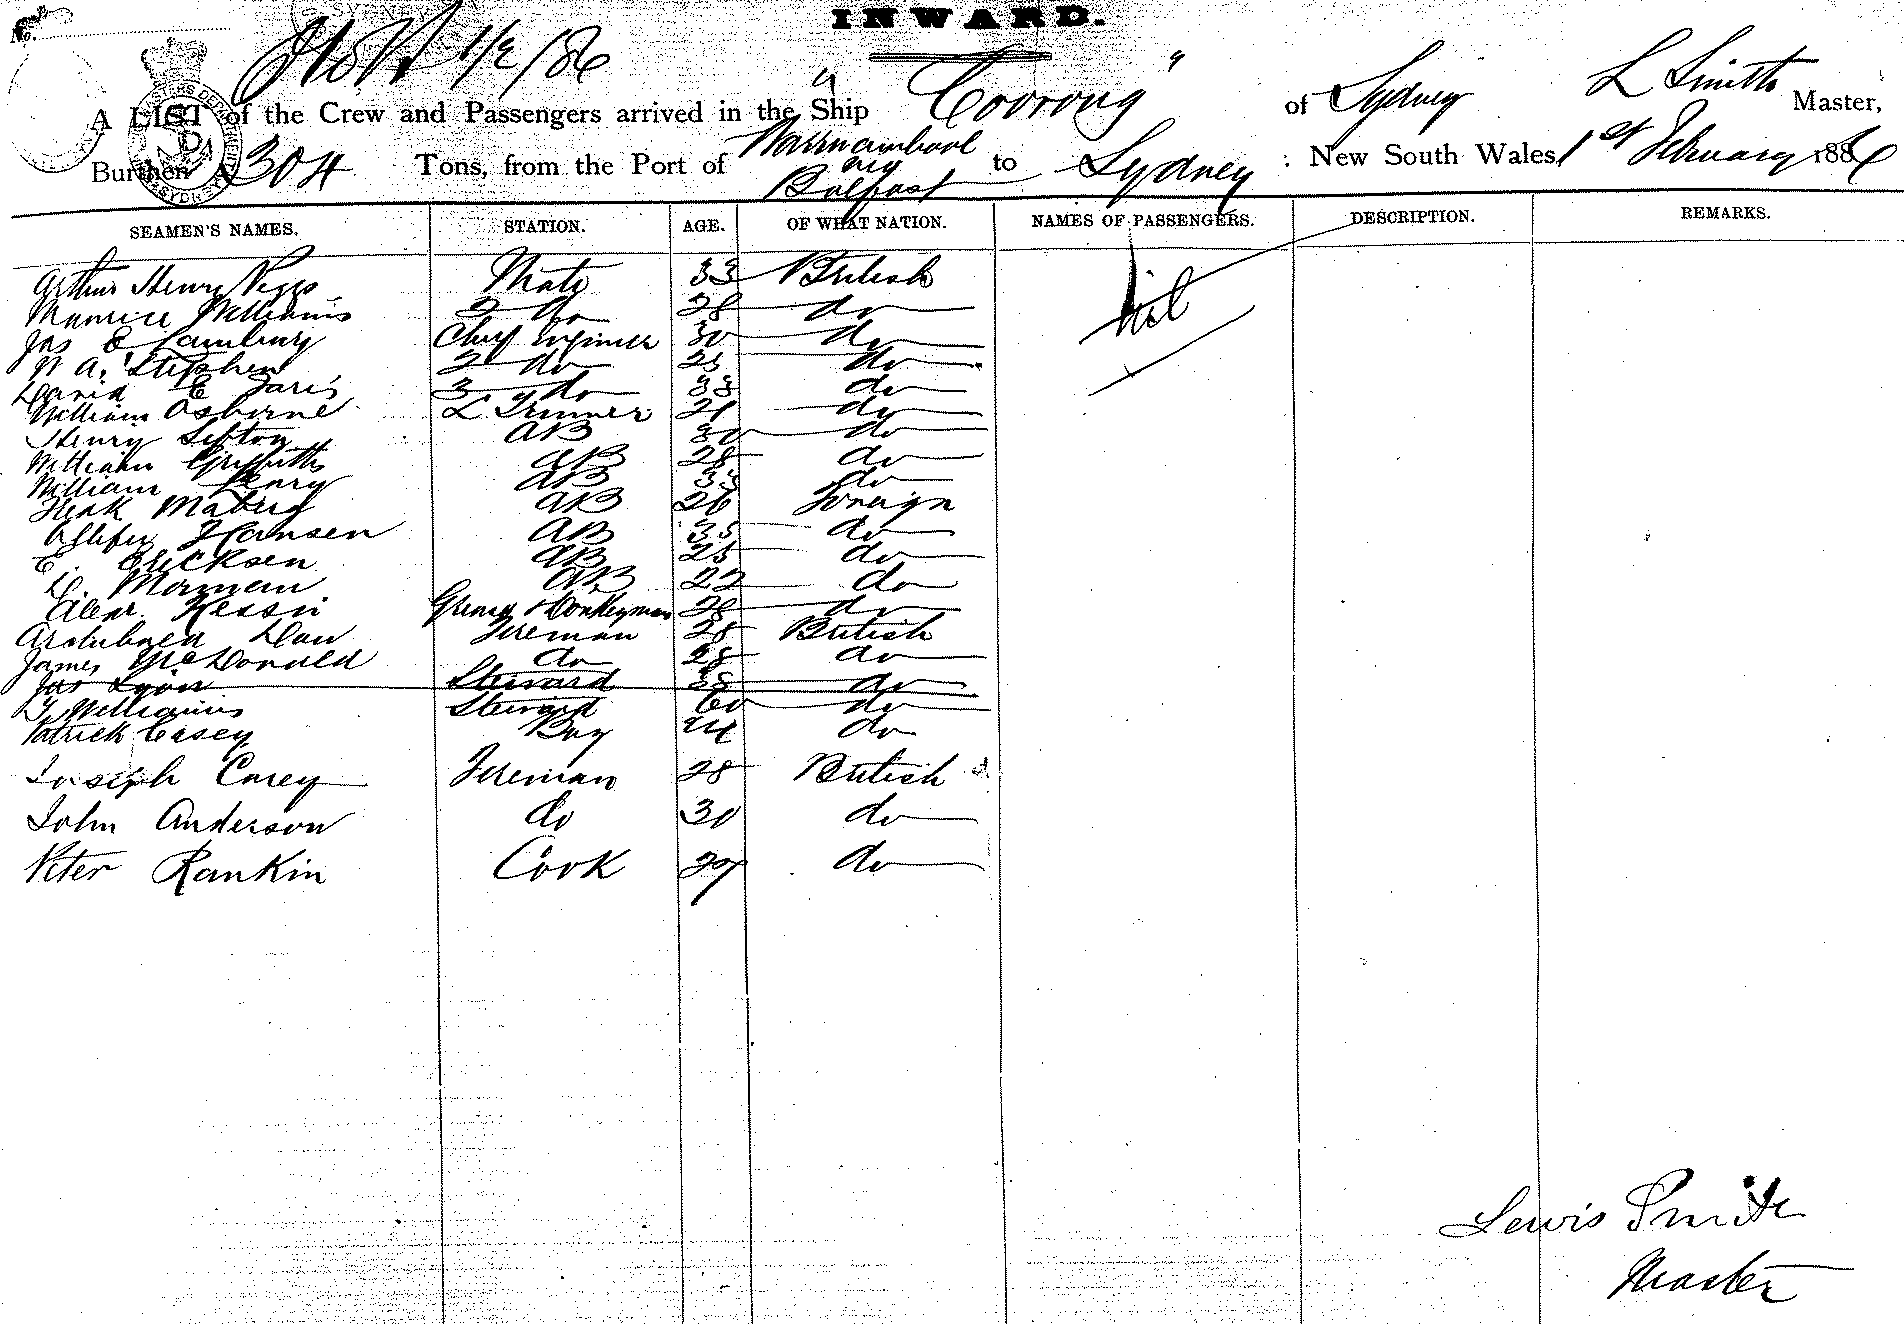 INWARD.
1/2/86
A LIST of the Crew and Passengers arrived in the Ship "Coorong" of Sydney L Smith Master,
Burthen 304 Tons, from the Port of Warrnambool and Belfast to Sydney : New South Wales 1st February 1886
SEAMEN'S NAMES. STATION. AGE. OF WHAT NATION. NAMES OF PASSENGERS. DESCRIPTION. REMARKS.
Arthur Henry Mate 33 British Nil
Maurice Williams 2 do 28 do
Jas E Chief Engineer 30 do
W A. Stephen 2 do 25 do
David E Faris 3 do 33 do
William Osborne L Trimmer 21 do
Henry Sefton AB 30 do
William Griffiths AB 28 do
William Henry AB 33 do
AB 26 Foreign
Hansen AB 35 do
E. Ericksen AB 25 do
Morman AB 22 do
Alexr Kessin Greaser & Donkeyman 28 do
Archibald Daw Fireman 28 British
James McDonald do 28 do
Jas Lyon Steward 38 do
T Williams Steward 60 do
Patrick Casey Boy do
Joseph Carey Fireman 28 British
John Anderson do 30 do
Peter Rankin Cook 27 do
Lewis Smith
Master